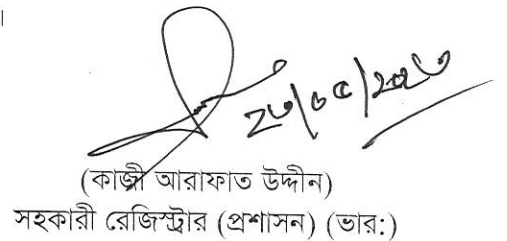 ২৩/০৫/২০২৩
(কাজী আরাফাত উদ্দীন)
সহকারী রেজিস্ট্রার (প্রশাসন) (ভার:)